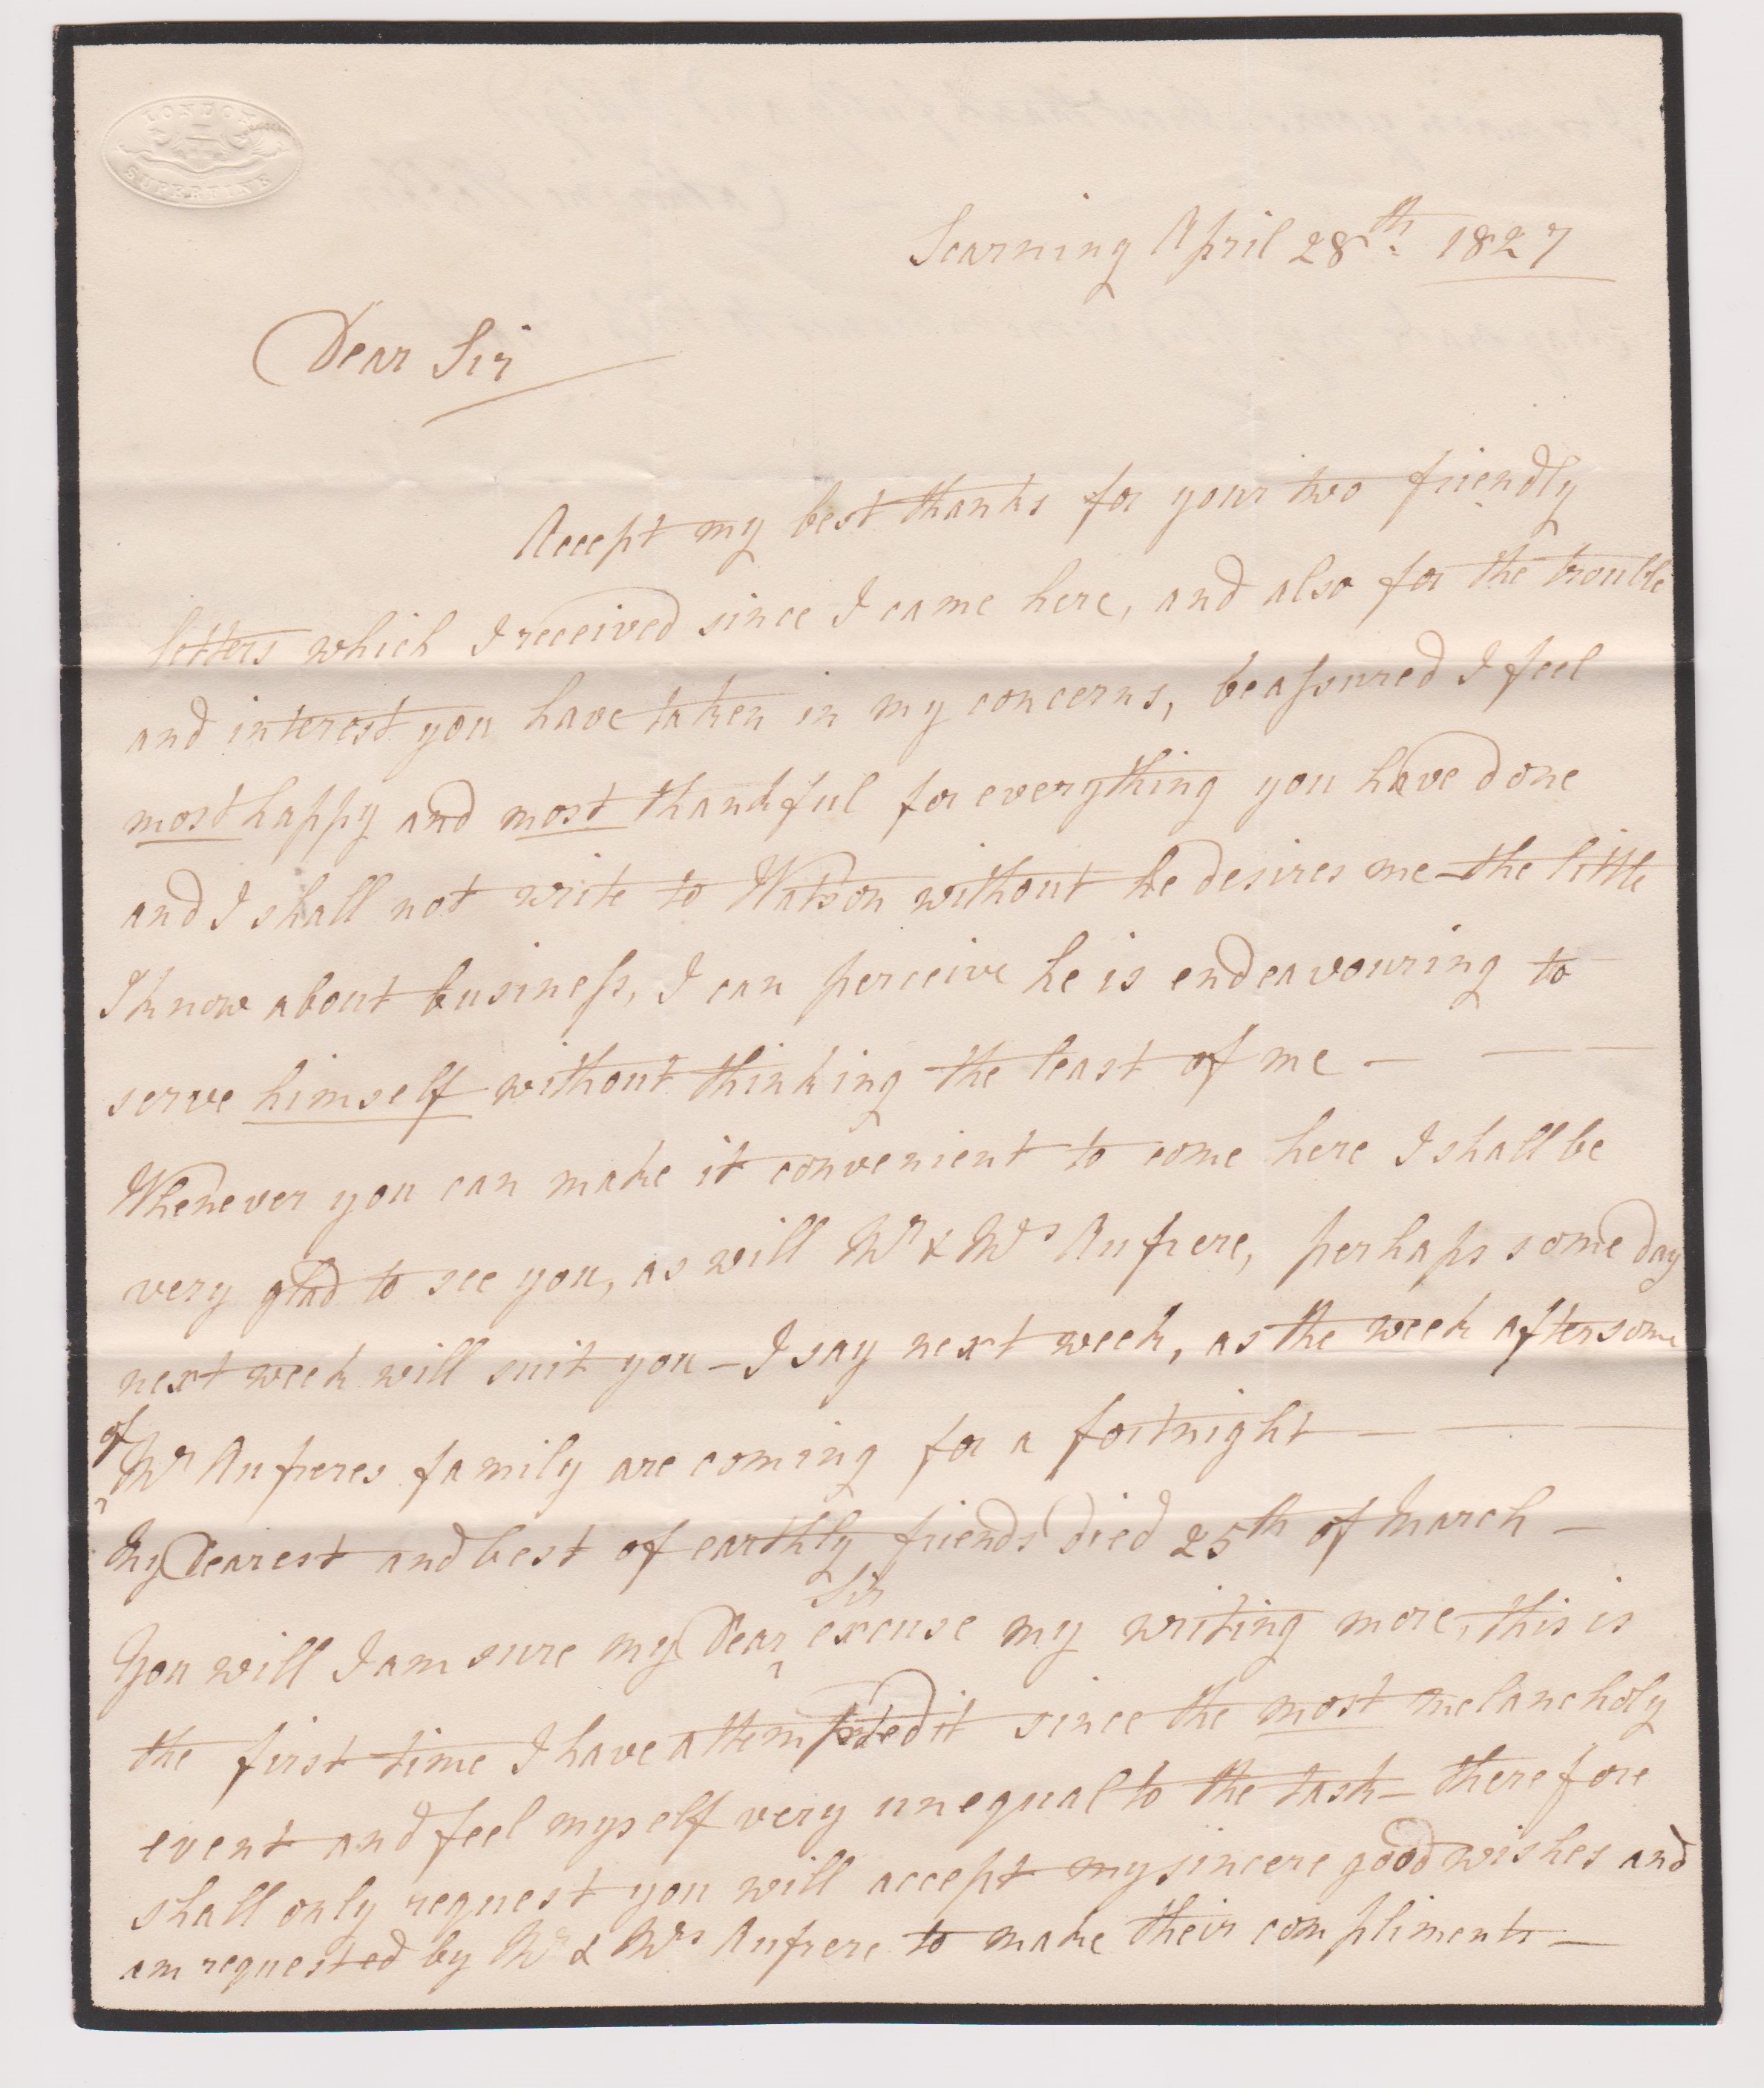 LONDON
SUPERFINE
Scarning April 28th. 1827
Dear Sir
Accept my best thanks for your two friendly
letters which I received since I came here, and also for the trouble
and interest you have taken in my concerns, be aſsured I feel
most happy and most thankful for everything you have done
and I shall not write to Watson without he desires me – the little
I know about buſineſs, I can perceive he is endeavouring to
serve himself without thinking the least of me –
Whenever you can make it convenient to come here I shall be
very glad to see you, as will Mr & Mrs Aufrere, perhaps some day
next week will suit you – I say next week, as the week after some
of Mr Aufreres family are coming for a fortnight –
My Dearest and best of earthly friends died 25th of March –
You will I am sure my Dear Sir excuse my writing more, this is
the first time I have attempted it since the most melancholy
event and feel myself very unequal to the task – therefore
shall only request you will accept my sincere good wishes and
am requested by Mr & Mrs Aufrere to make their compliments –